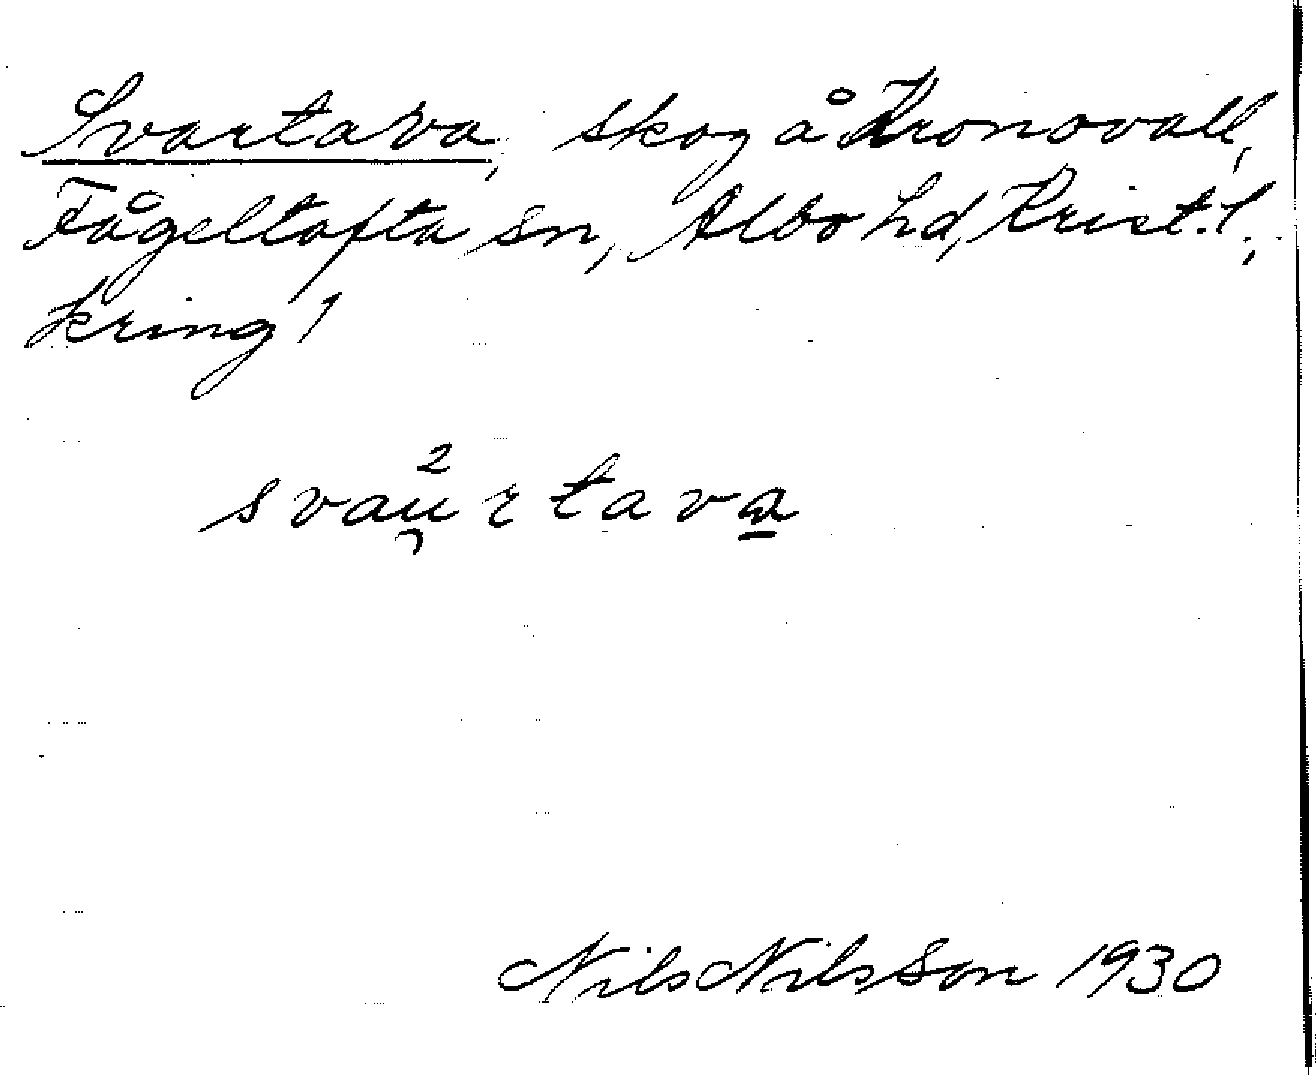 Svartava, skog å Kronovall,
Fågeltofta sn, Albo hd, Krist.l.,
kring!
svau̯²rtava
Nils Nilsson 1930